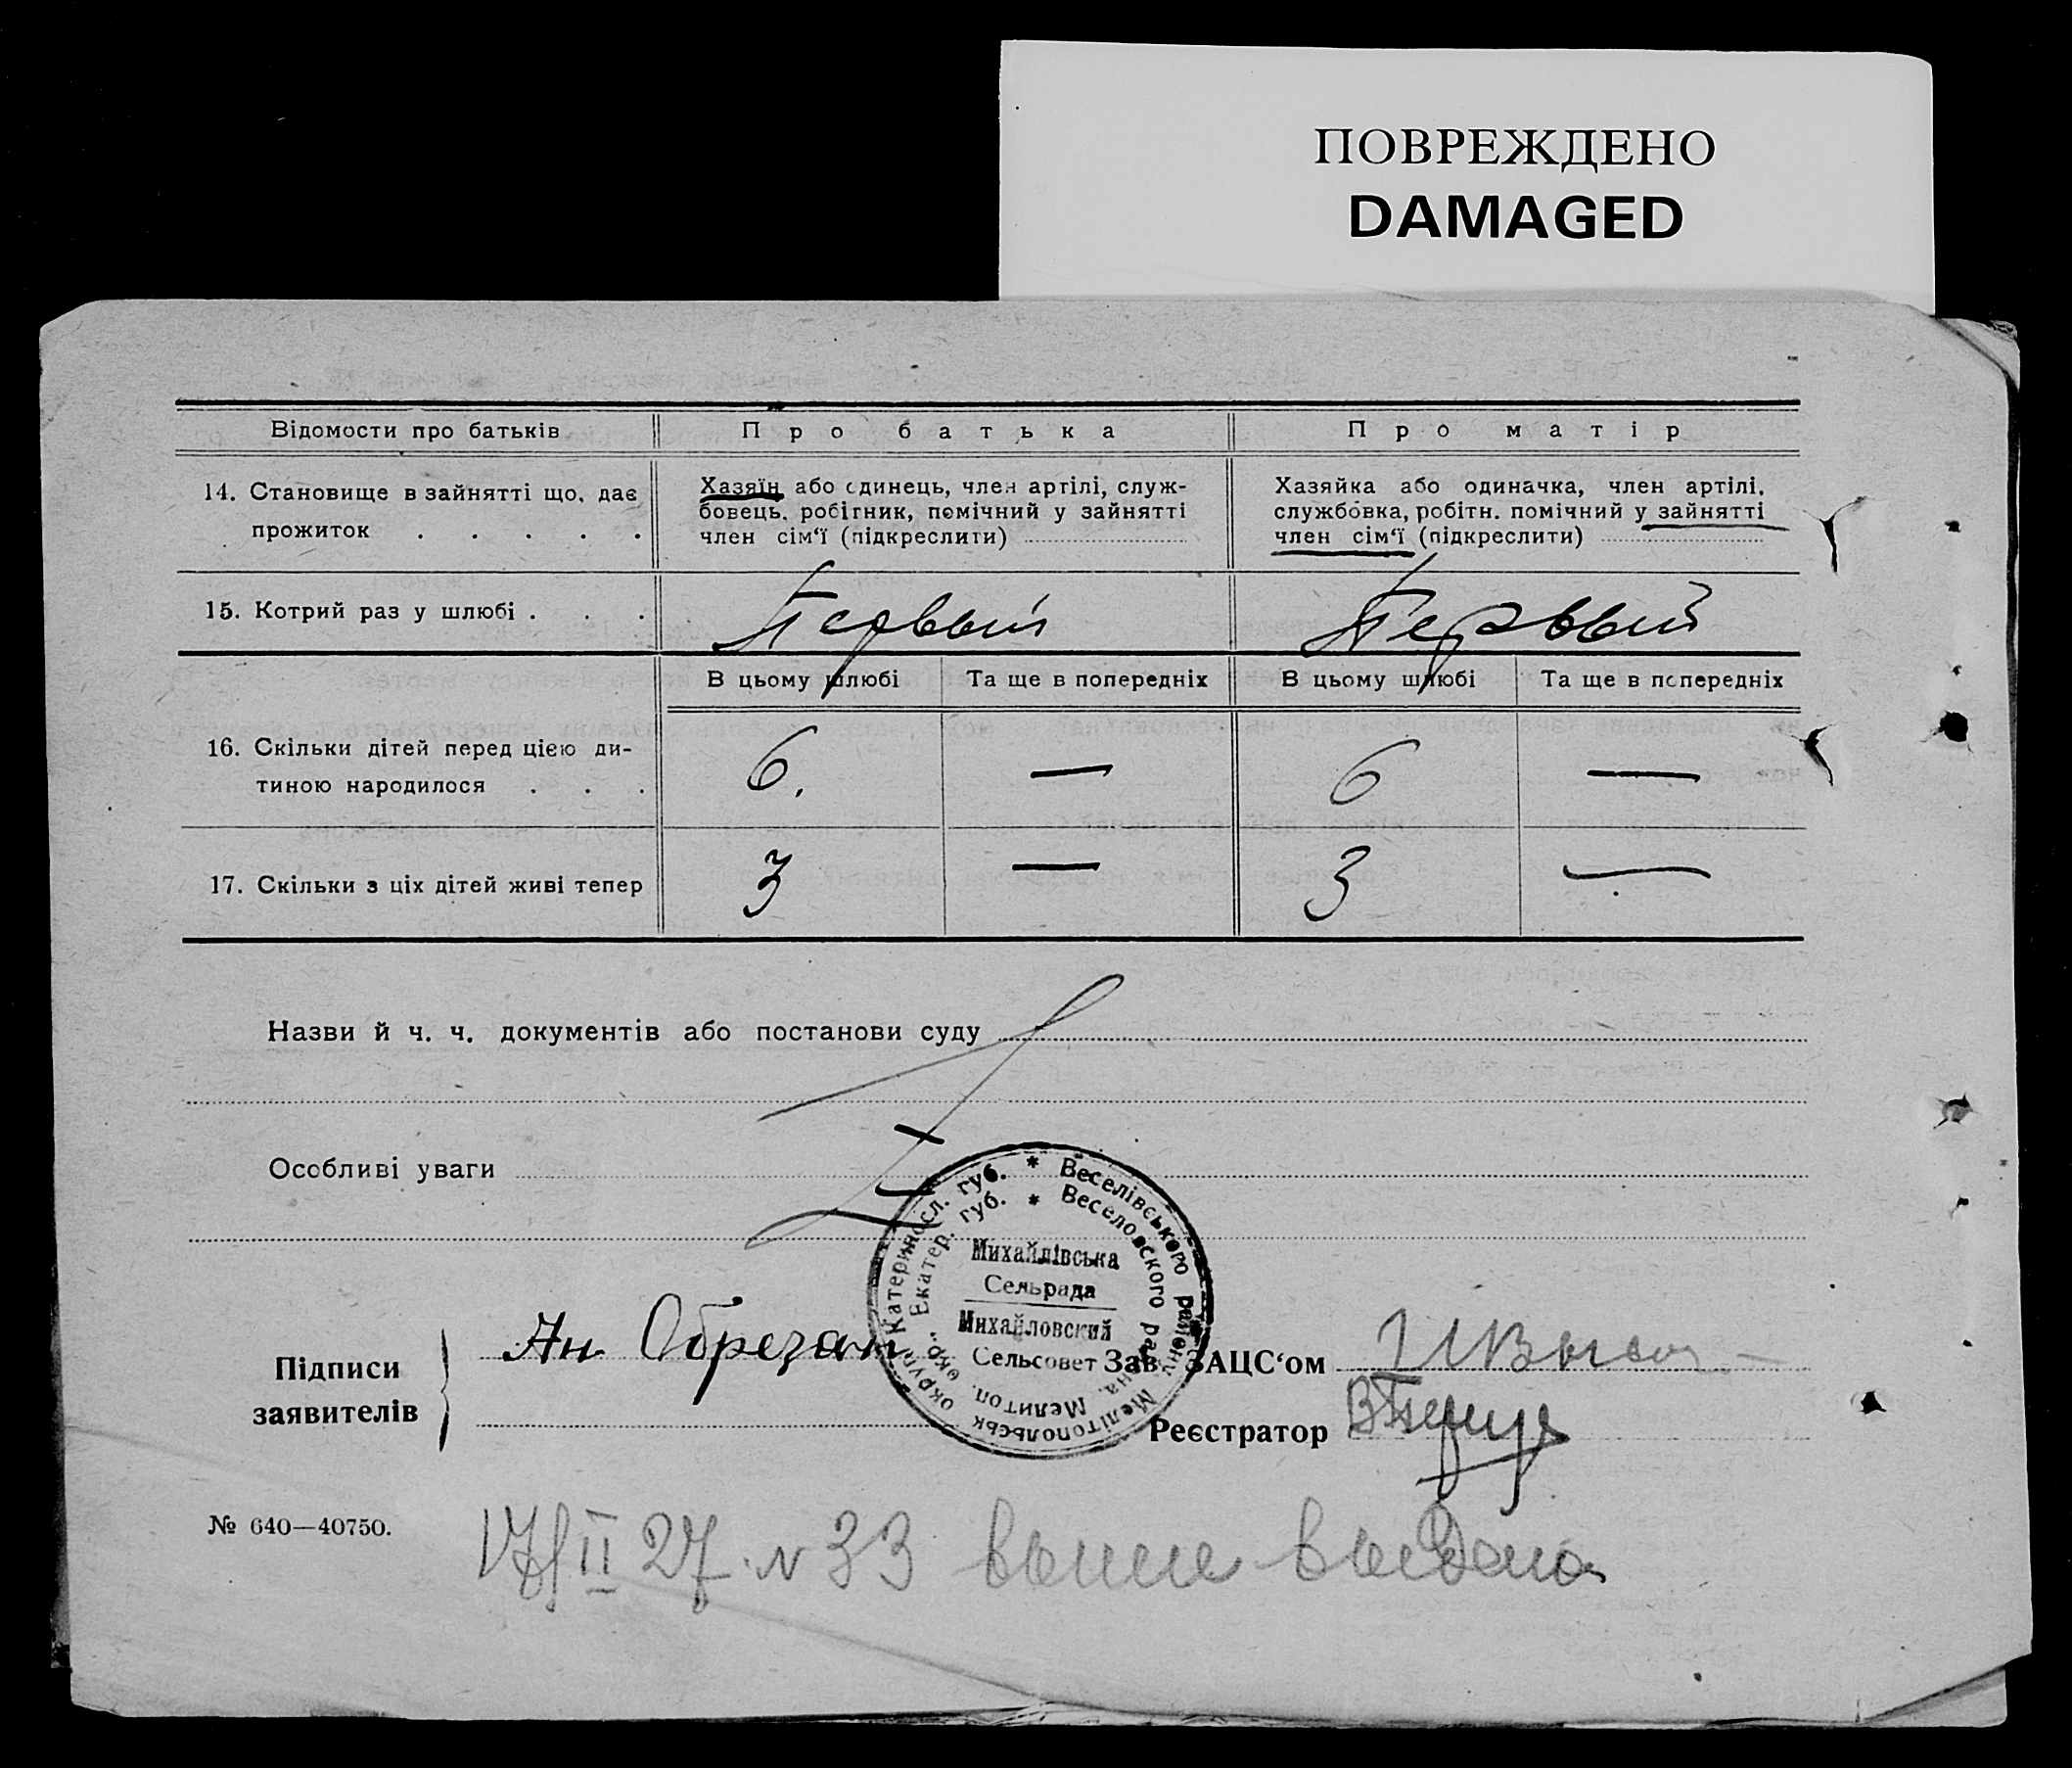 ПОВРЕЖДЕНО
DAMAGED
Відомости про батьків
Про батька
Про матір
14. Становище в зайнятті що, дає
прожиток . . . . .
Хазяїн або єдинець, член артілі, служ-
бовець, робітник, помічний у зайнятті
член сім‘ї (підкреслити)
Хазяйка або одиначка, член артілі,
службовка, робітн. помічний у зайнятті
член сім‘ї (підкреслити)
15. Котрий раз у шлюбі . . .
Первый
Первый
В цьому шлюбі
Та ще в попередніх
В цьому шлюбі
Та ще в попередніх
16. Скільки дітей перед цією ди-
тиною народилося . . .
6.
—
6
—
17. Скільки з ціх дітей живі тепер
3
—
3
—
Назви й ч. ч. документів або постанови суду
Особливі уваги
* Веселівського району Мелітопольськ округ. Катериносл. губ.
* Веселовского района, Мелитоп. окр. Екатер. губ.
Михайлівська
Сельрада
Михайловский
Сельсовет
Підписи
заявителів
Ан Обрезан
Зав. ЗАЦС‘ом
Реєстратор
№ 640—40750.
17/II 27 № 33